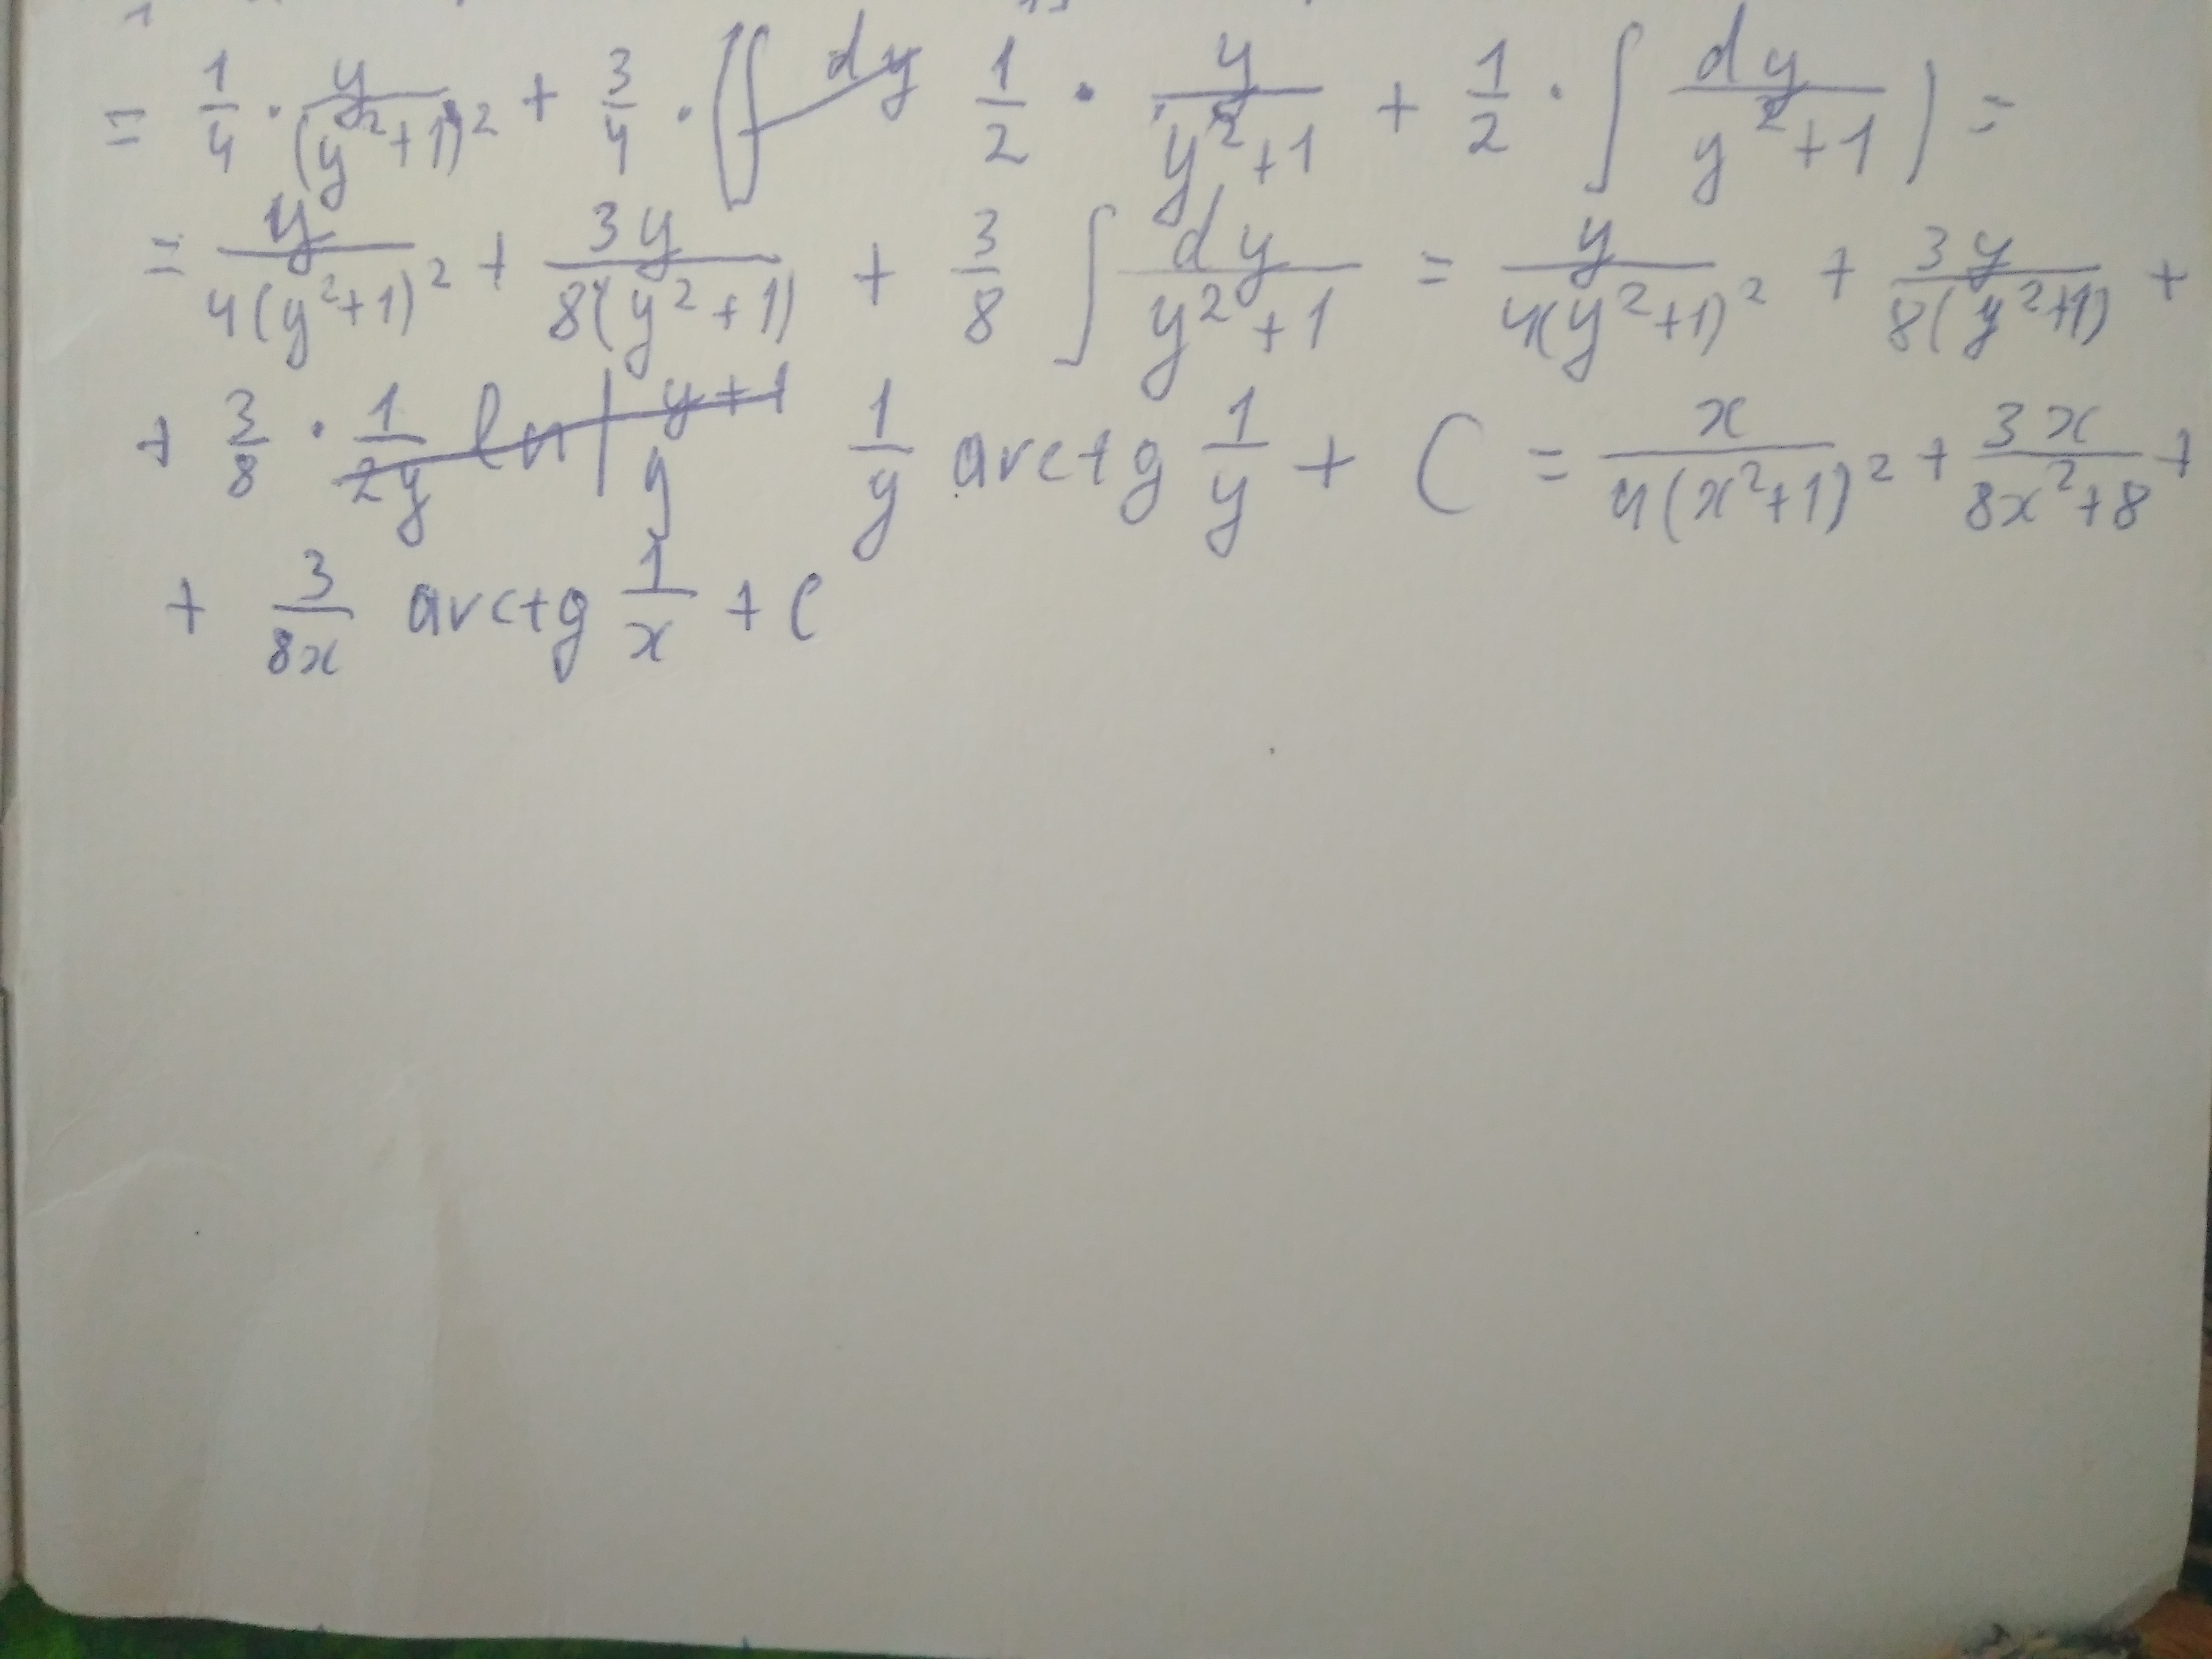 = 1/4 · y/(y²+1)² + 3/4 · (∫ dy 1/2 · y/y²+1 + 1/2 · ∫ dy/y²+1) =
= y/4(y²+1)² + 3y/8(y²+1) + 3/8 ∫ dy/y²+1 = y/4(y²+1)² + 3y/8(y²+1) +
+ 3/8 · 1/2y ln | y+1/y 1/y arctg 1/y + C = x/4(x²+1)² + 3x/8x²+8 +
+ 3/8x arctg 1/x + C